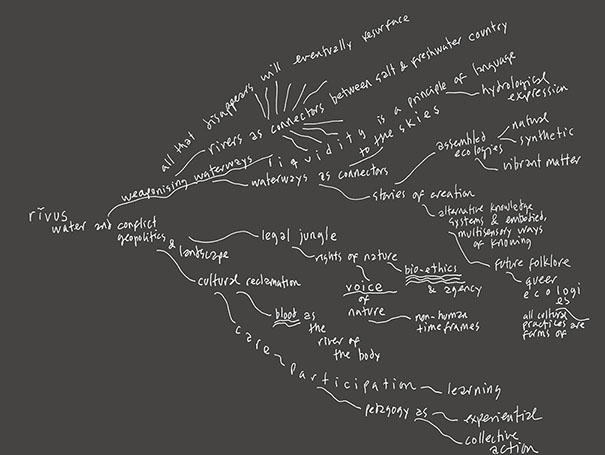 all that disappears will eventually resurface
rivers as connectors between salt & freshwater country
liquidity is a principle of language
hydrological
expression
weaponising waterways
waterways as connectors
to the skies
assembled
ecologies
natural
synthetic
vibrant matter
stories of creation
alternative knowledge
systems & embodied,
multisensory ways
of knowing
future folklore
queer
ecologi
es
all cultural
practices are
forms of
rīvus
water and conflict
geopolitics
& landscape
legal jungle
rights of nature
bio-ethics
& agency
voice
of
nature
non-human
timeframes
cultural reclamation
blood as
the
river of
the body
care
participation
learning
pedagogy as
experiential
collective
action